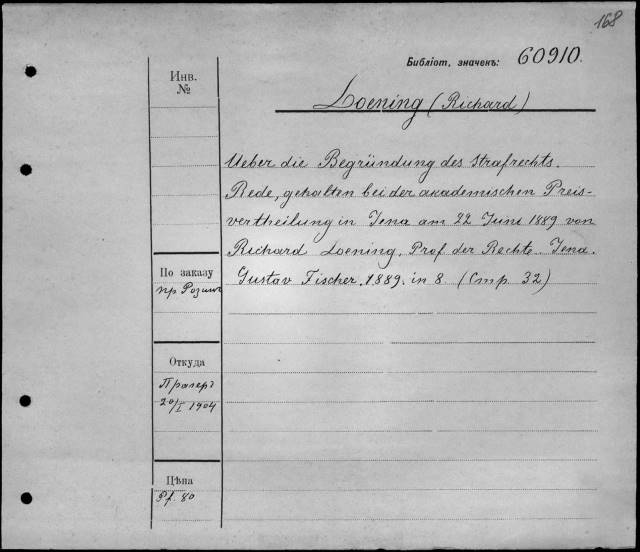 168
Библіот. значекъ: 60910.
Инв.
№
Loening (Richard)
Ueber die Begründung des Strafrechts.
Rede, gehalten bei der akademischen Preis-
vertheilung in Jena am 22 Juni 1889 von
Richard Loening, Prof. der Rechte. Jena.
Gustav Fischer. 1889. in 8. (Стр. 32)
По заказу
пр. Розинъ
Откуда
Прагеръ
20/I 1904
Цѣна
Pf. 80